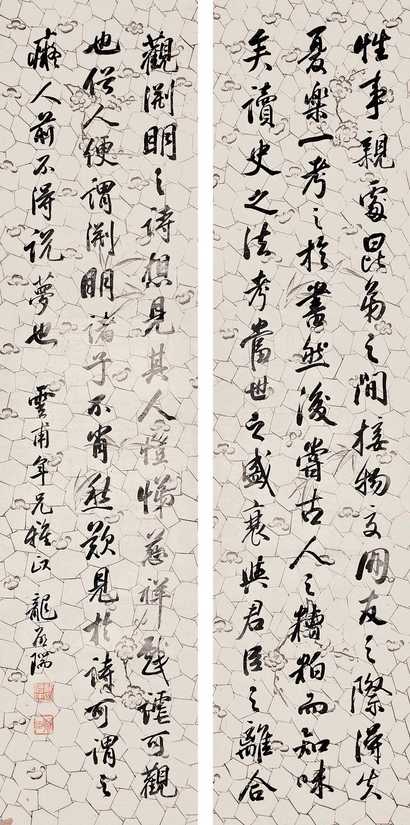 性事親處昆弟之間接物交朋友之際得失
憂樂一考之於書然後嘗古人之糟粕而知味
矣讀史之法考當世之盛衰與君臣之離合
觀淵明之詩想見其人愷悌慈祥戲謔可觀
也俗人便謂淵明諸子不肖愁歎見於詩可謂之
癡人前不得說夢也 雲甫年兄雅正 龍啟瑞